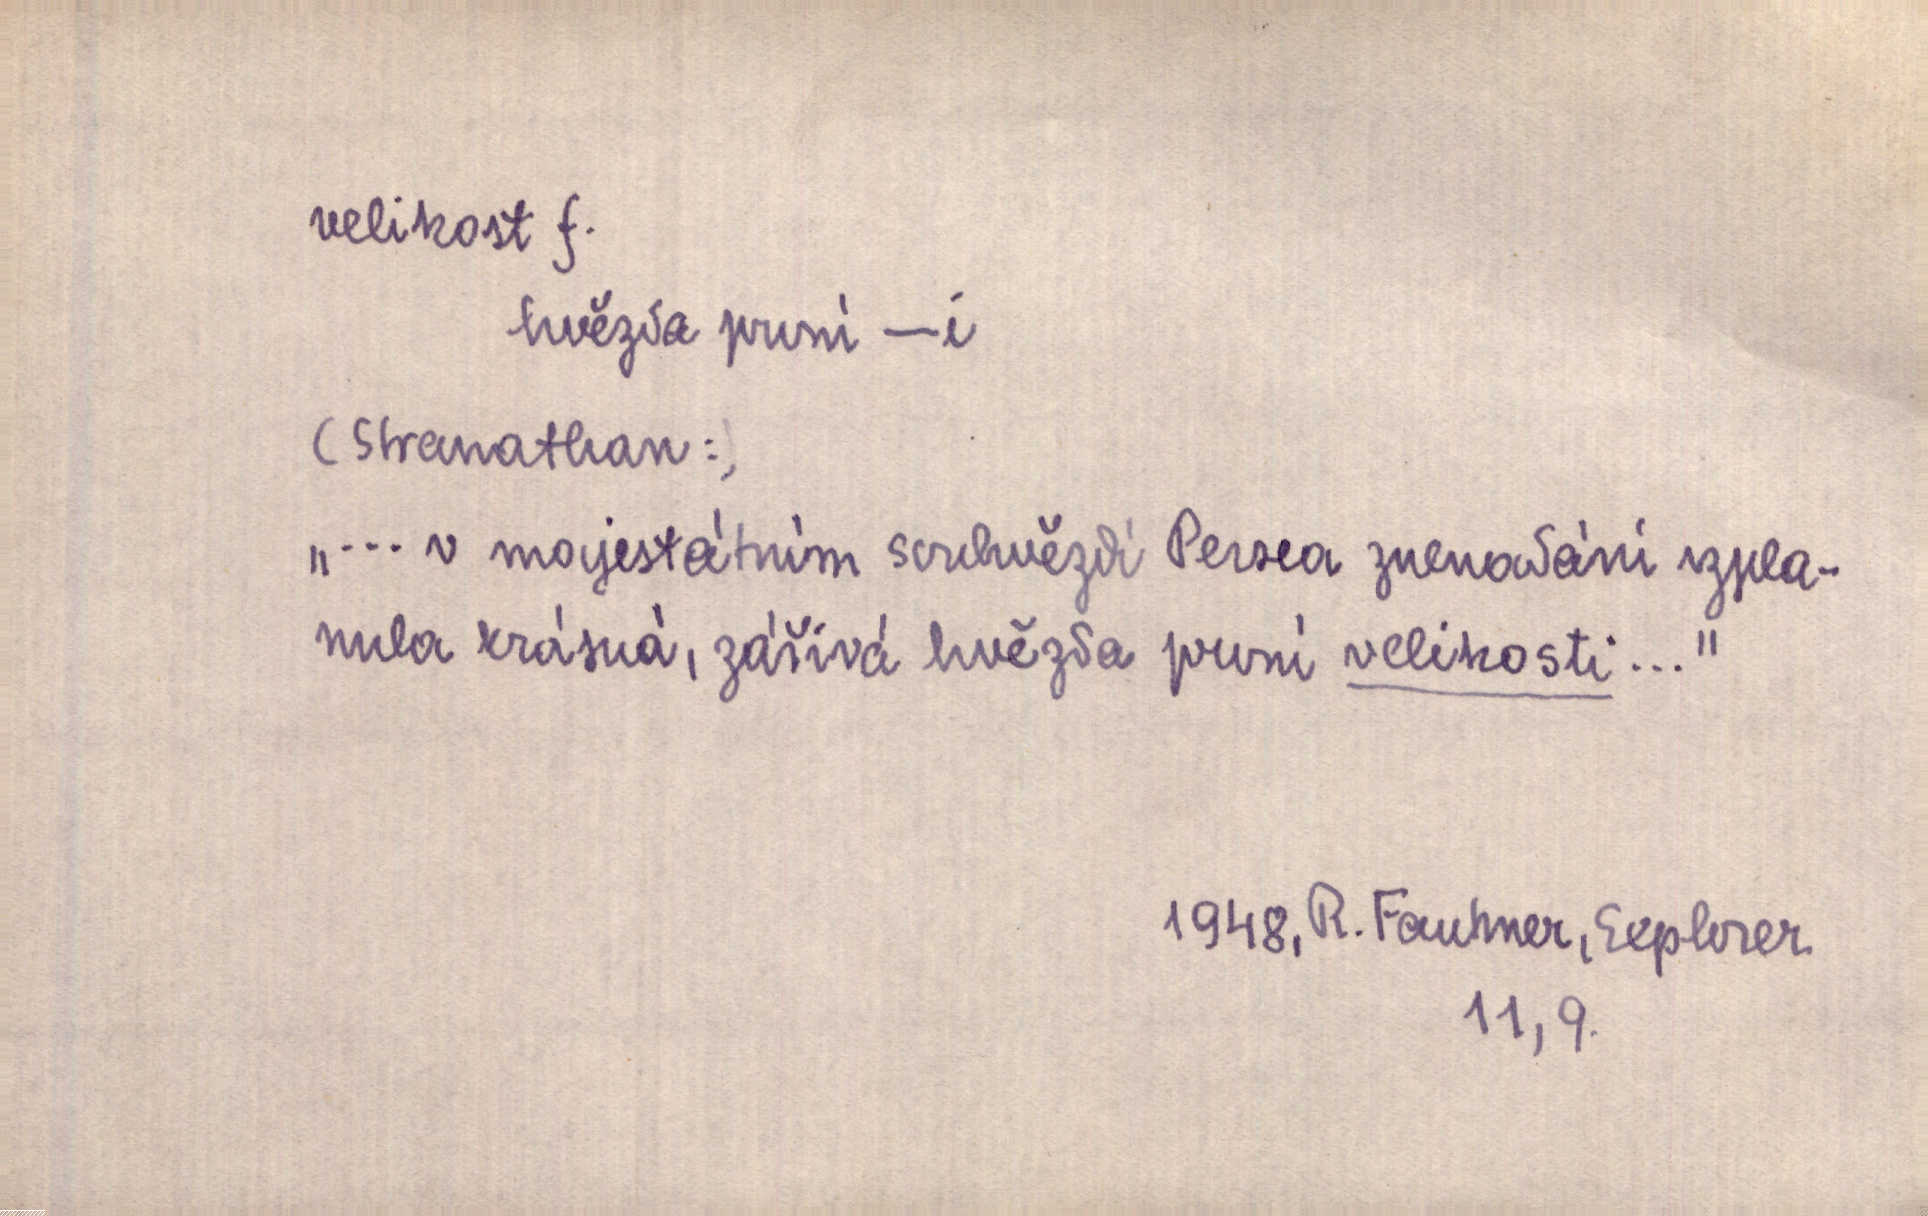 velikost f.
hvězda první —i
(Stranathan:)
„... v majestátním souhvězdí Persea znenadání vzpla-
nula krásná, zářivá hvězda první velikosti..."
1948, R. Faukner, Explorer
11, 9.